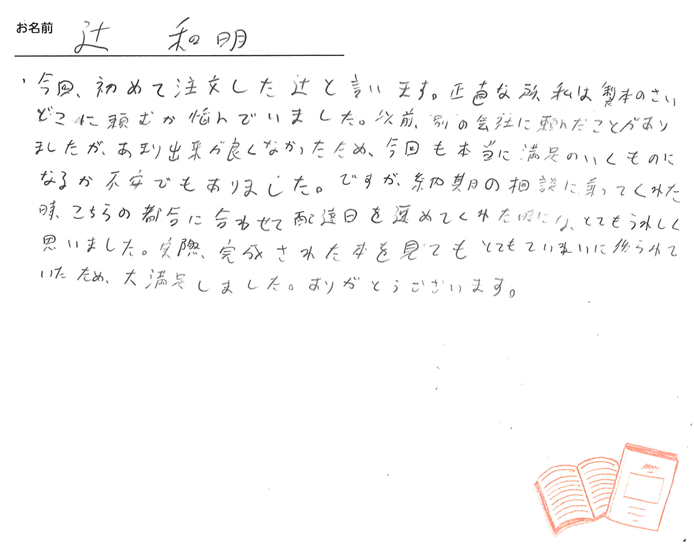 お名前 辻 和明
今回、初めて注文した辻と言います。正直な所 私は製本のさい
どこに頼むか悩んでいました。以前、別の会社に頼んだことがあり
ましたが、あまり出来が良くなかったため、今回も本当に満足のいくものに
なるか不安でもありました。ですが、納期の相談に乗ってくれた
時、こちらの都合に合わせて配達日を速めてくれた時には、とてもうれしく
思いました。実際、完成された本を見てもとてもていねいに作られて
いたため、大満足しました。ありがとうございます。